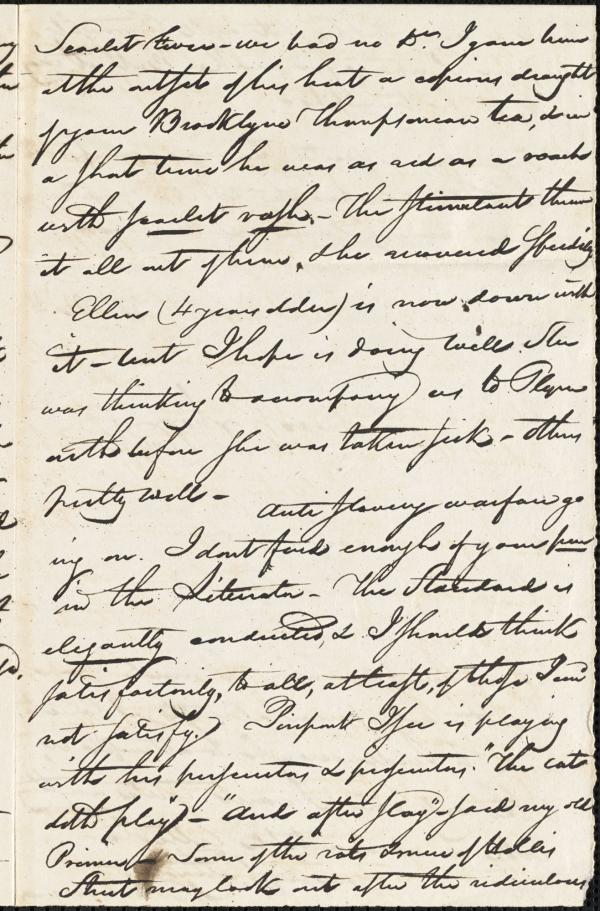 Scarlet fever - we had no Dr. I gave him
at the outset of his heat a copious draught
of your Brooklyne Thompsonian tea, & in
a short time he was as red as a roach
with scarlet rash. - The stimulant threw
it all out of him, & he recovered speedily
Ellen (4 years older) is now down with
it - but I hope is doing well. She
was thinking to accompany us to Plym
outh before she was taken sick - others
pretty well - anti slavery warfare go
ing on. I dont find enough of your pen
in the Liberator - The Standard is
elegantly conducted, & I should think
satisfactorily, to all, at least, of those I can
not satisfy. Pierpont I see is playing
with his persecutors & prosecutors. "The cat
doth play" - "and after slay" - said my old
Primer - Some of the rats & mice of Hollis
Street may look out after the ridiculous